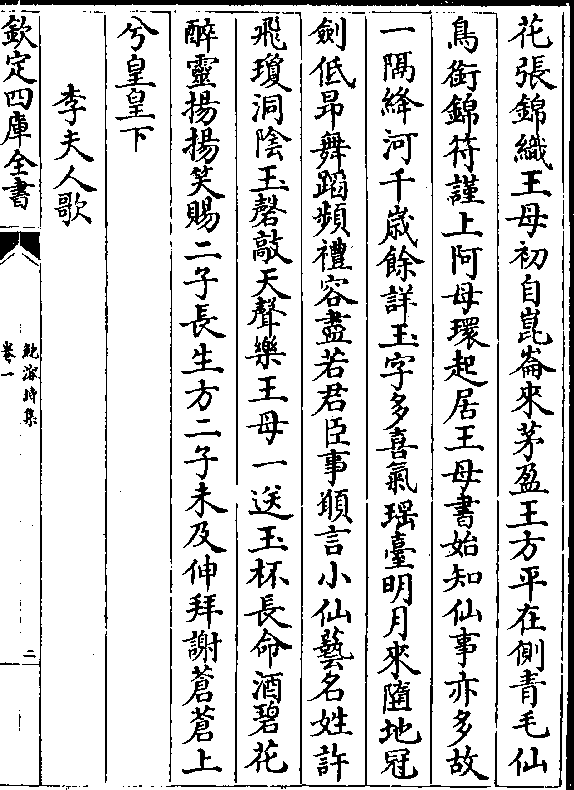 花張錦織王母初自崑崙來茅盈王方平在側青毛仙
鳥銜錦符謹上阿母環起居王母書始知仙事亦多故
一隔絳河千歲餘詳玉字多喜氣瑶臺明月來隨地冠
劍低昂舞蹈頻禮容盡若君臣事願言小仙藝名姓許
飛瓊洞隂玉磬敲天聲樂王母一送玉杯長命酒碧花
醉靈揚揚笑賜二子長生方二子未及伸拜謝蒼蒼上
兮皇皇下
李夫人歌
欽定四庫全書
鮑溶詩集
卷一
二